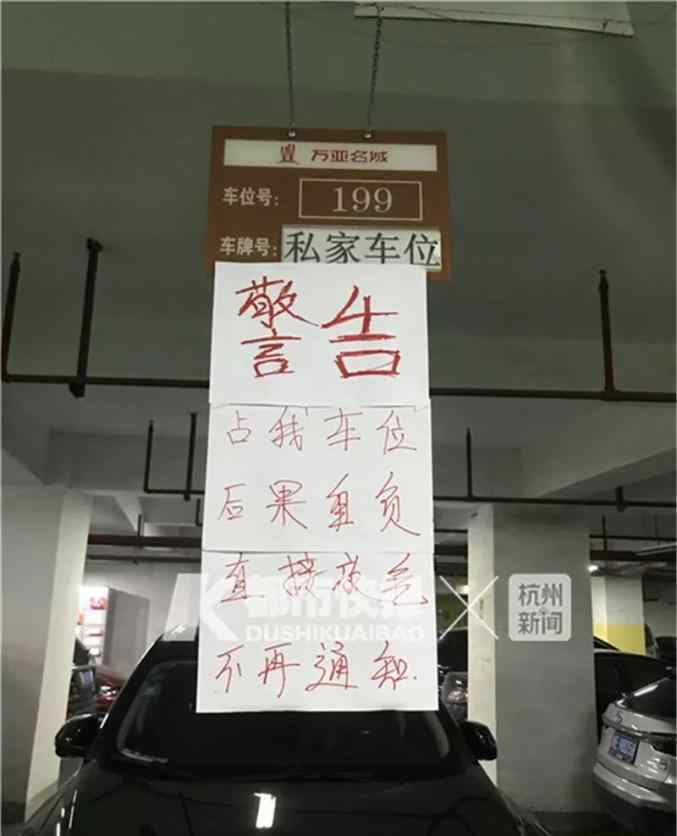 万亚名城
车位号: 199
车牌号: 私家车位
警告
占我车位
后果自负
直接放气
不再通知.
都市快报
DUSHIKUAIBAO
杭州
新闻